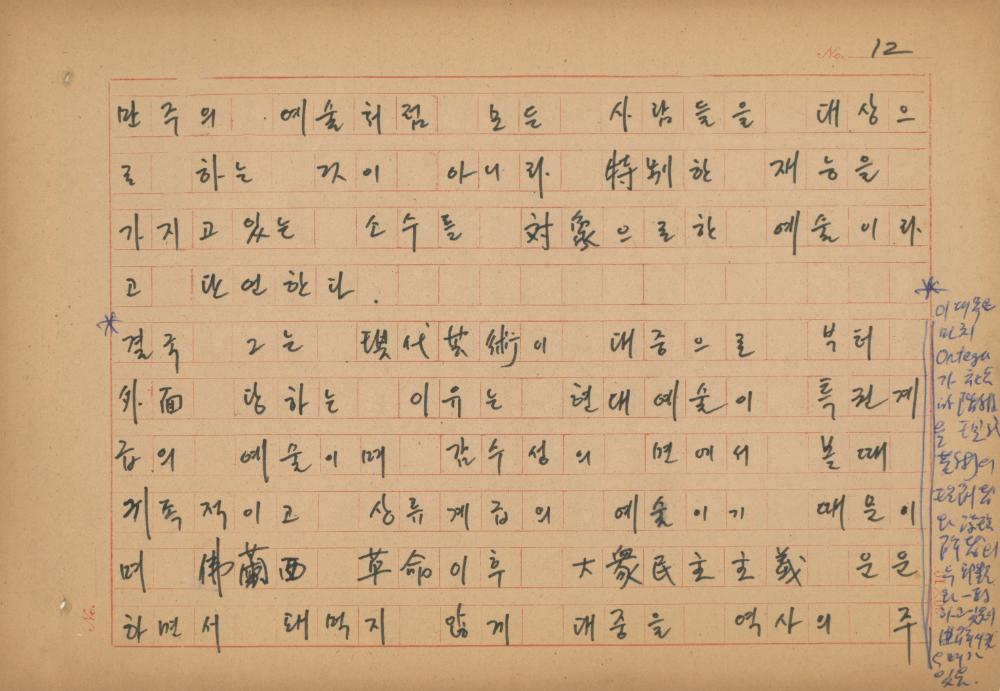 No. 12
만주의 예술처럼 모든 사람들을 대상으
로 하는 것이 아니라. 特別한 재능을
가지고 있는 소수를 対象으로한 예술이라.
고 단언한다.
* 결국 그는 現代芸術이 대중으로 부터
外面 당하는 이유는 현대예술이 특권계
급의 예술이며 감수성의 면에서 볼때
귀족적이고 상류계급의 예술이기 때문이
며 佛蘭西 革命이후 大衆民主主義 운운
하면서 돼먹지 않게 대중을 역사의 주
*
이 대목은
마치
Ortega
가
을
하고
있음.
No.